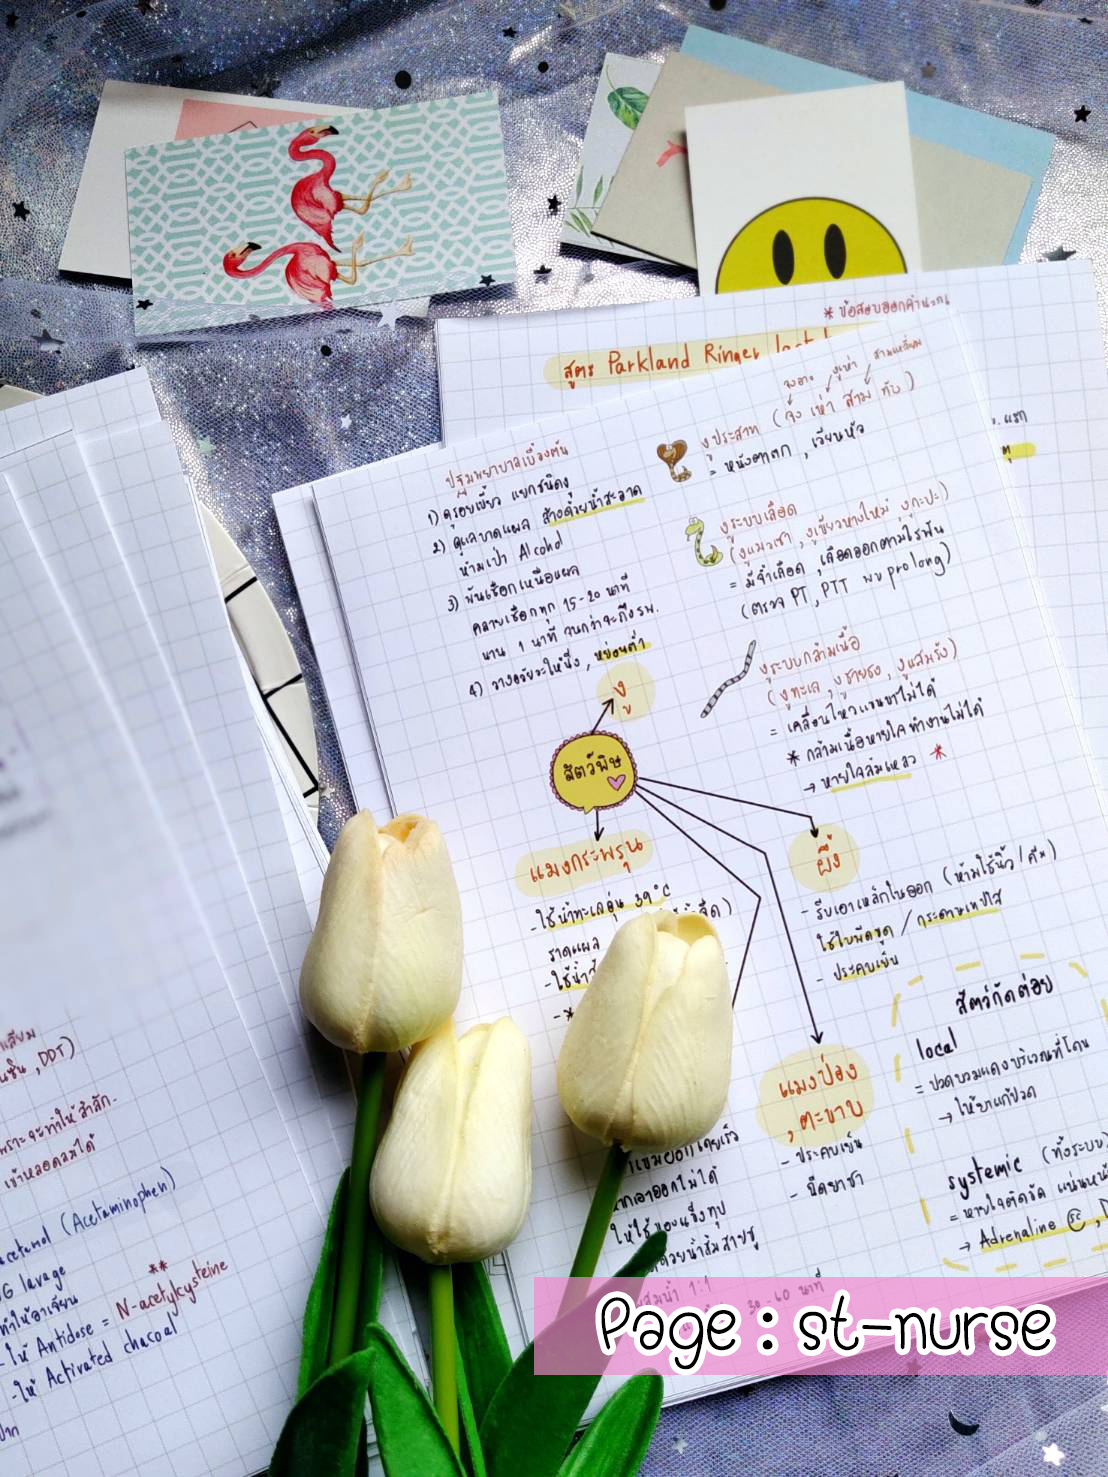 * ข้อสอบออกคำนวณ
สูตร Parkland Ringer
ปฐมพยาบาลเบื้องต้น
1) ดูรอยเขี้ยว แยกชนิดงู
2) ดูแลบาดแผล ล้างด้วยน้ำสะอาด
ห้ามเป่า Alcohol
3) พันเชือกเหนือแผล
คลายเชือกทุก 15-20 นาที
นาน 1 นาที จนกว่าจะถึงรพ.
4) วางอวัยวะให้นิ่ง , หย่อนต่ำ
งู
จงอาง งูเห่า สามเหลี่ยม
งูประสาท (จง เห่า สาม ทับ)
= หนังตาตก , เวียนหัว
งูระบบเลือด
(งูแมวเซา , งูเขียวหางไหม้ งูกะปะ)
= มีจ้ำเลือด , เลือดออกตามไรฟัน
(ตรวจ PT , PTT พบ prolong)
งูระบบกล้ามเนื้อ
(งูทะเล , งูชายธง , งูแสมรัง)
= เคลื่อนไหวแขนขาไม่ได้
* กล้ามเนื้อหายใจทำงานไม่ได้
→ หายใจล้มเหลว *
สัตว์พิษ
แมงกระพรุน
- ใช้น้ำทะเลอุ่น 39°C
ราดแผล
ผึ้ง
- รีบเอาเหล็กในออก (ห้ามใช้นิ้ว/คีบ)
ใช้ใบมีดขูด / กระดาษเทปใส
- ประคบเย็น
แมงป่อง
, ตะขาบ
- ประคบเย็น
- ฉีดยาชา
สัตว์กัดต่อย
local
= ปวดบวมแดงบริเวณที่โดน
→ ให้ยาแก้ปวด
systemic (ทั้งระบบ)
= หายใจติดขัด
→ Adrenaline
ออกโดยเร็ว
เอาออกไม่ได้
ให้ใช้ของแข็งทุบ
ด้วยน้ำส้มสายชู
ผสมน้ำ 1:1
30-60 นาที
, DDT)
เพราะจะทำให้สำลัก
เข้าหลอดลมได้
(Acetaminophen)
lavage
ทำให้อาเจียน
**
- ให้ Antidose = N-acetylcysteine
- ให้ Activated chacoal
Page : st-nurse